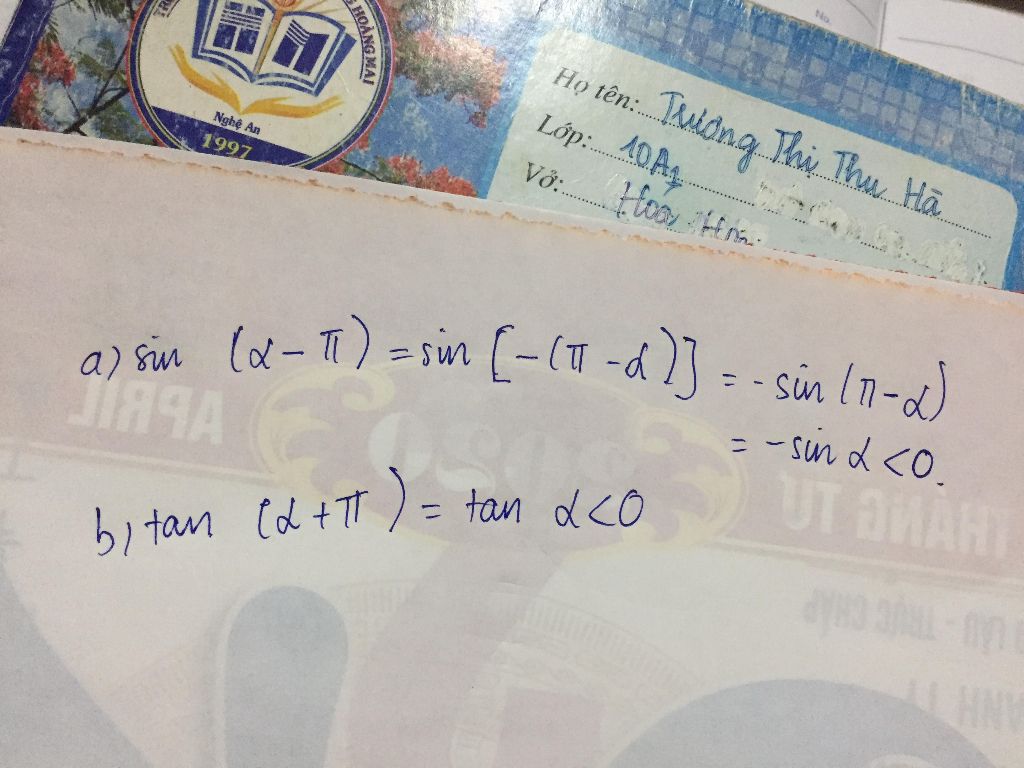 HOÀNG MAI
Nghệ An
1997
No.
Họ tên: Trương Thị Thu Hà
Lớp: 10A1
Vở: Hoá Học
a) sin (α - π) = sin [-(π - α)] = - sin (π - α)
= - sin α < 0.
b) tan (α + π) = tan α < 0
APRIL
2020
THÁNG TƯ